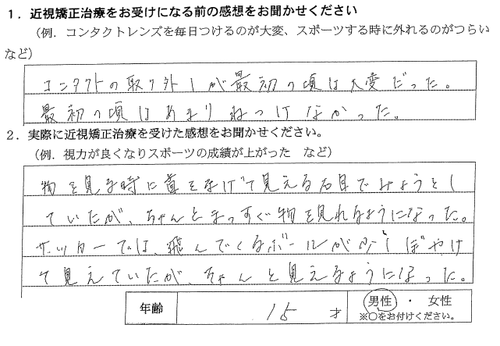 1．近視矯正治療をお受けになる前の感想をお聞かせください
(例．コンタクトレンズを毎日つけるのが大変、スポーツする時に外れるのがつらい
など)
コンタクトの取り外しが最初の頃は大変だった。
最初の頃はあまりねつけなかった。
2．実際に近視矯正治療を受けた感想をお聞かせください。
(例．視力が良くなりスポーツの成績が上がった など)
物を見る時に首をまげて見える右目でみようとし
ていたが、ちゃんとまっすぐ物を見れるようになった。
サッカーでは、飛んでくるボールが少しぼやけ
て見えていたが、ちゃんと見えるようになった。
年齢 15 才 男性 ・ 女性
※○をお付けください。